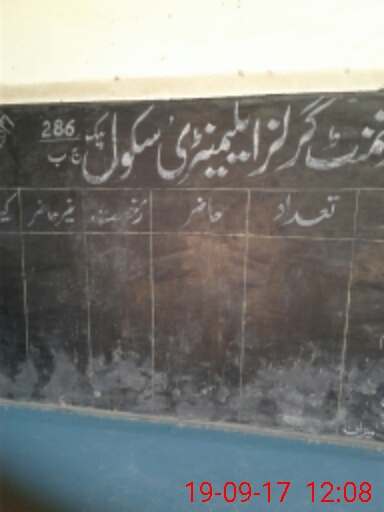 نمنٹ گرلز ایلیمینٹری سکول چک 286 ج ب
تعداد حاضر رخصت غیر حاضر
میزان
19-09-17 12:08